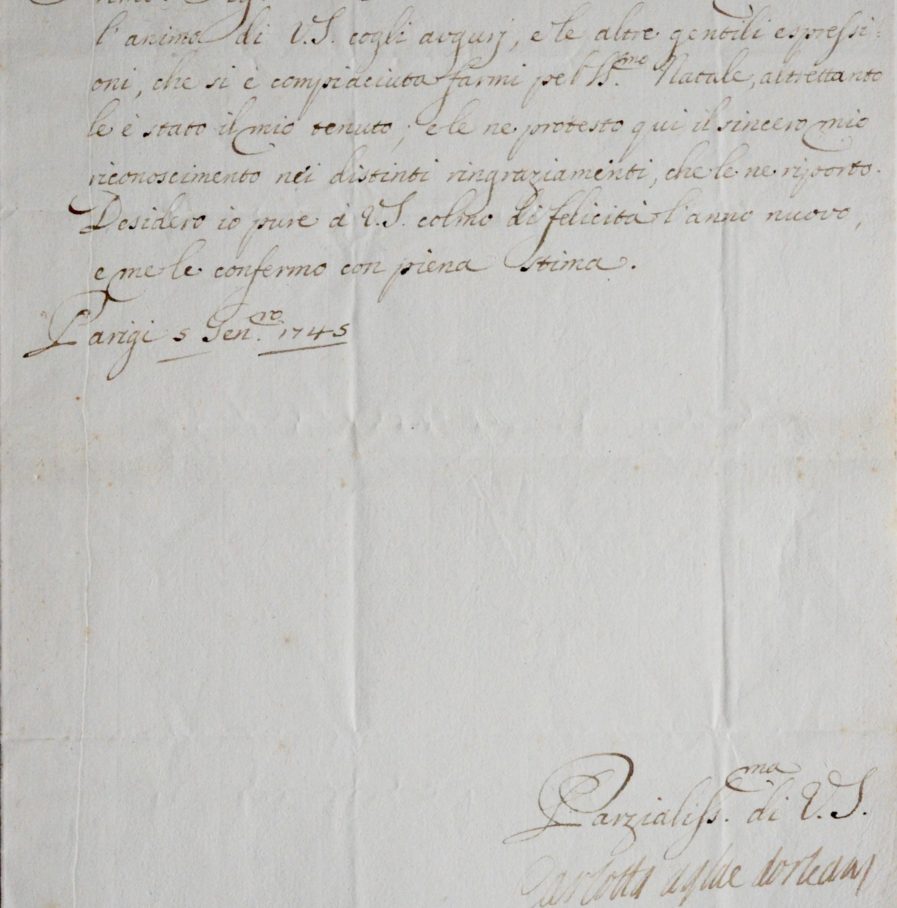 l'animo di V.S. cogli augurj, e le altre gentili espressi:
oni, che si è compiaciuta farmi pel SS.mo Natale, altrettanto
le è stato il mio tenuto; e le ne protesto qui il sincero mio
riconoscimento nei distinti ringraziamenti, che le ne riporto.
Desidero io pure à V.S. colmo di felicità l'anno nuovo,
e me le confermo con piena stima.
Parigi 5 Gen.ro 1745
Parzialiss.ma di V.S.
Carlotta aglae dorleans